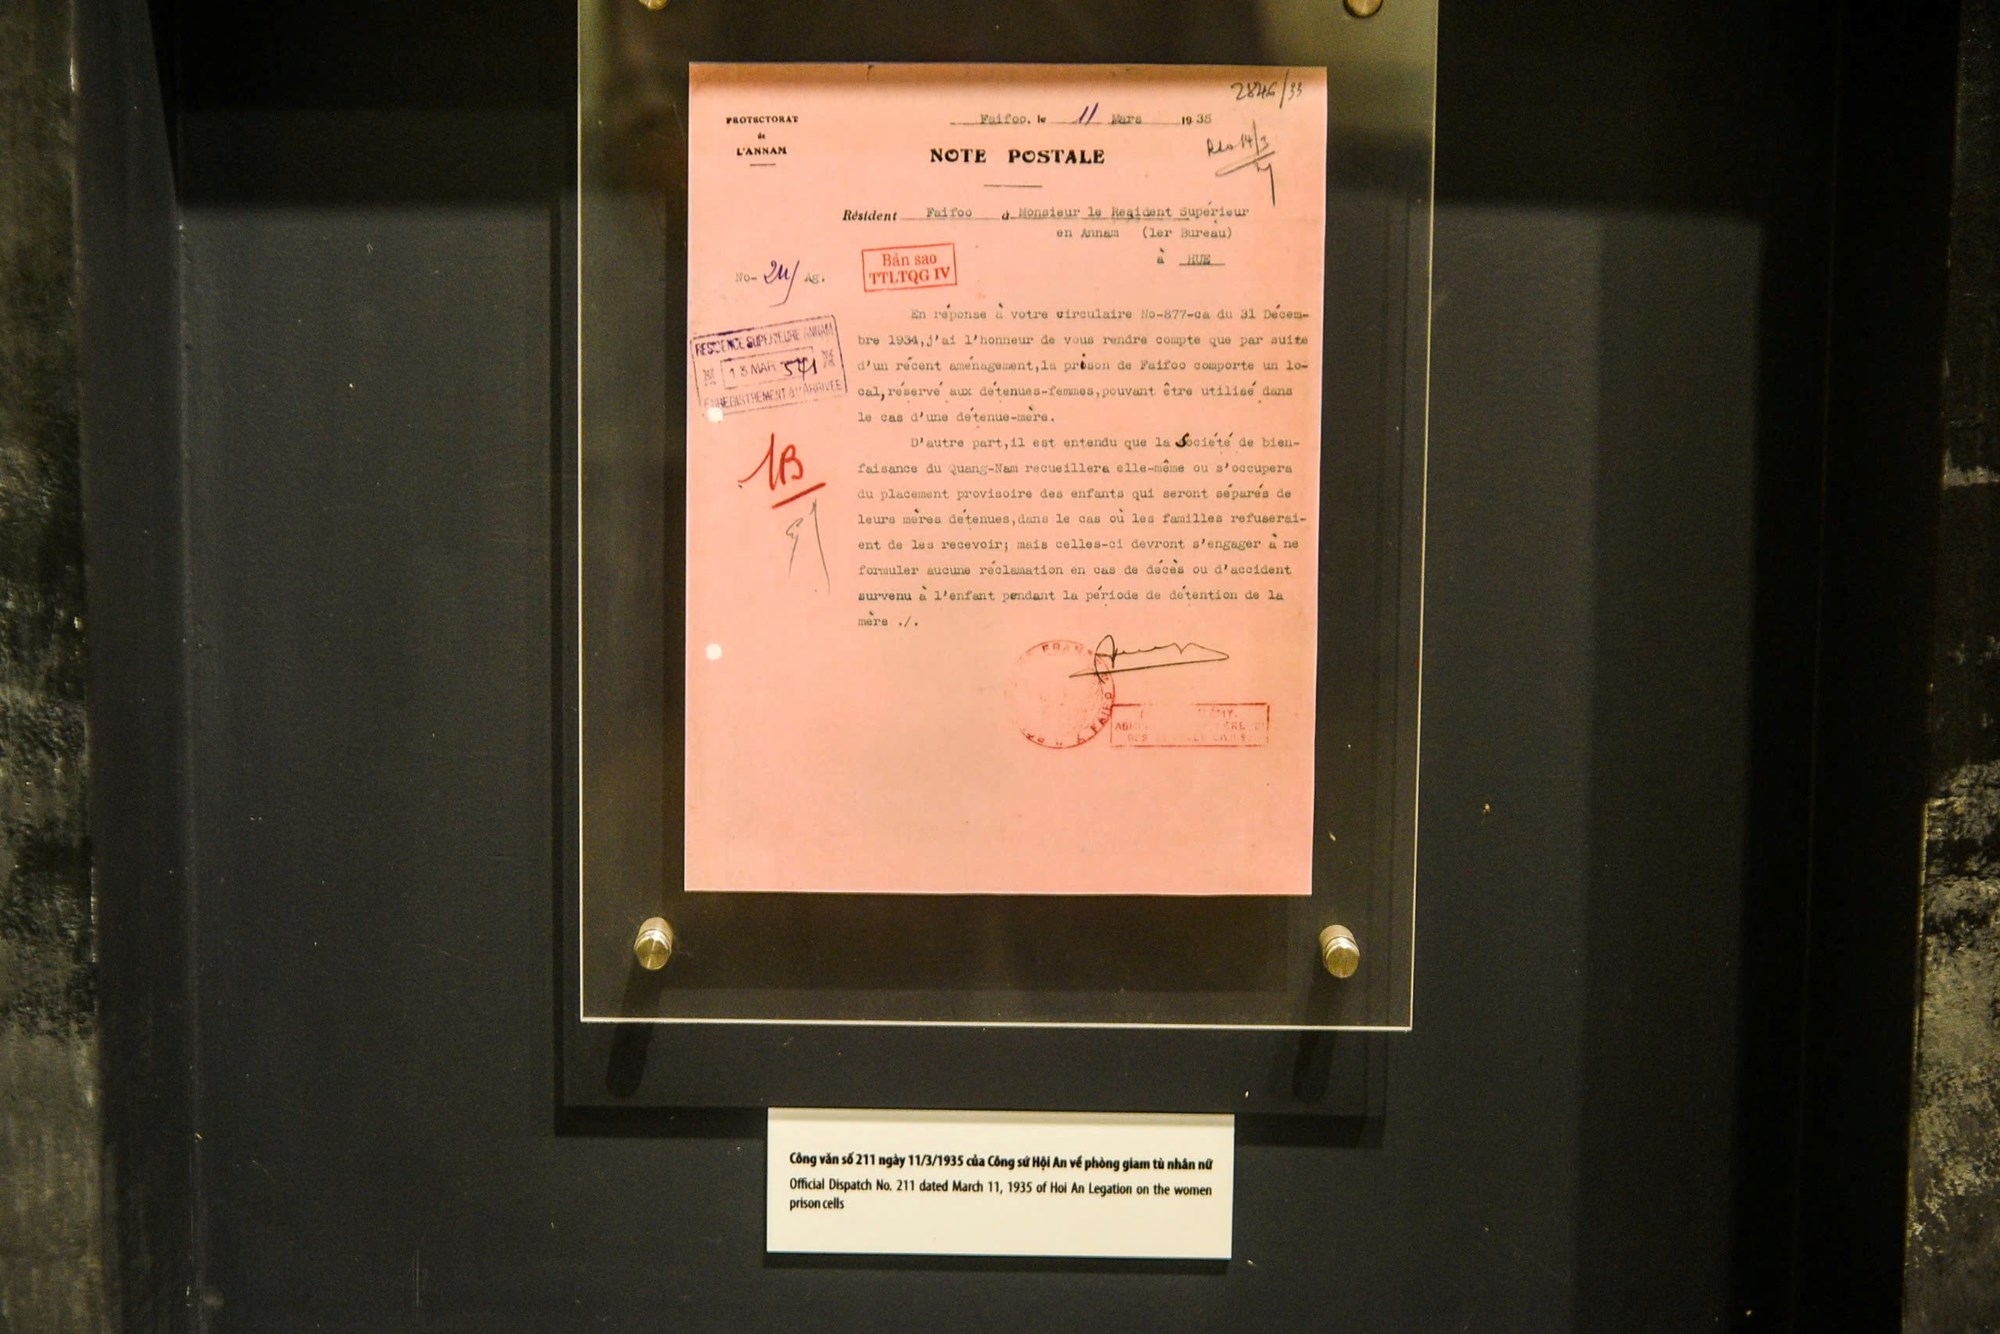 2846/35
PROTECTORAT
de
L'ANNAM
Faifoo. le 11 Mars 1935
NOTE POSTALE
Résident Faifoo à Monsieur le Resident Supérieur
en Annam (1er Bureau)
à HUE
No- 211 Ag.
Bản sao
TTLTQG IV
RESIDENCE SUPERIEURE ANNAM
13 MAR 35
ENREGISTREMENT à L'ARRIVÉE
1B
En réponse à votre circulaire No-877-ca du 31 Décem-
bre 1934,j'ai l'honneur de vous rendre compte que par suite
d'un récent aménagement,la prison de Faifoo comporte un lo-
cal,réservé aux détenues-femmes,pouvant être utilisé dans
le cas d'une détenue-mère.
D'autre part,il est entendu que la Société de bien-
faisance du Quang-Nam recueillera elle-même ou s'occupera
du placement provisoire des enfants qui seront séparés de
leurs mères détenues,dans le cas où les familles refuserai-
ent de les recevoir; mais celles-ci devront s'engager à ne
formuler aucune réclamation en cas de décès ou d'accident
survenu à l'enfant pendant la période de détention de la
mère ./.
Công văn số 211 ngày 11/3/1935 của Công sứ Hội An về phòng giam tù nhân nữ
Official Dispatch No. 211 dated March 11, 1935 of Hoi An Legation on the women
prison cells